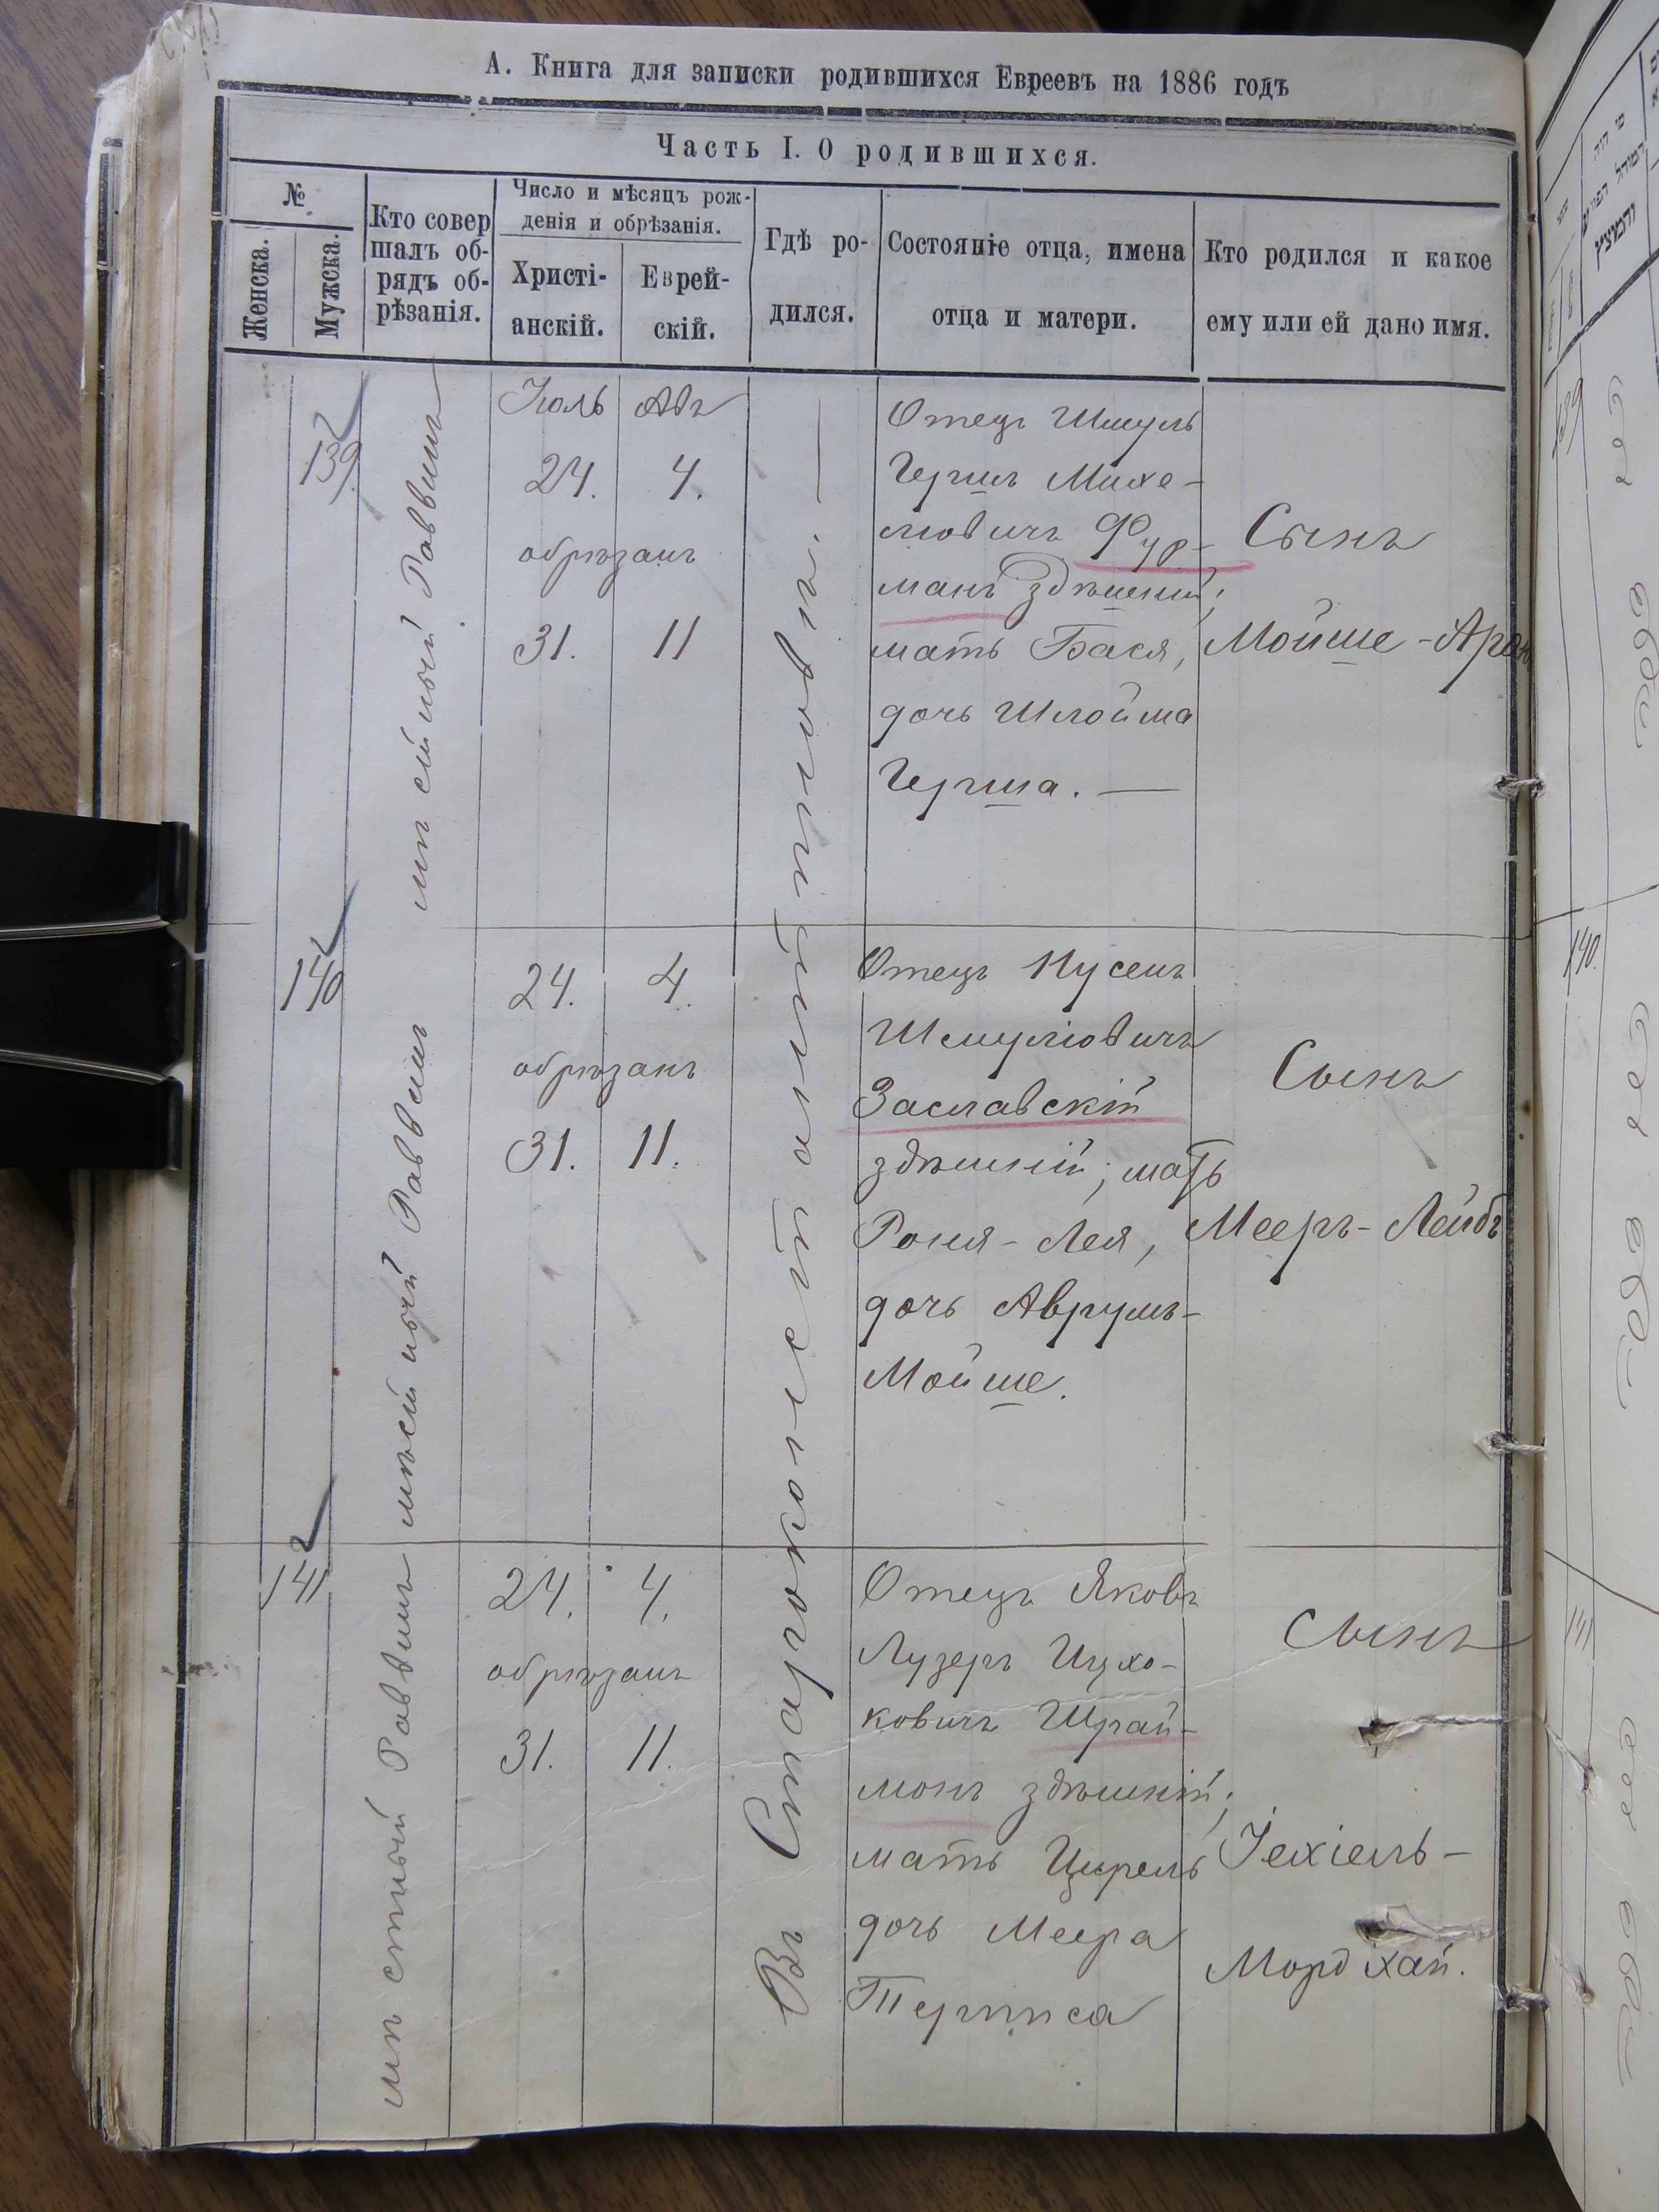 А. Книга для записки родившихся Евреевъ на 1886 годъ
Часть I. О родившихся.
№
Женска.
Мужска.
Кто совер
шалъ об-
рядъ об-
рѣзанія.
Число и мѣсяцъ рож-
денія и обрѣзанія.
Христі-
анскій.
Еврей-
скій.
Гдѣ ро-
дился.
Состояніе отца, имена
отца и матери.
Кто родился и какое
ему или ей дано имя.
Въ Староконстантиновѣ. —
139.
мѣстный Раввинъ
Іюль Авъ
24. 4.
обрѣзанъ
31. 11
Отецъ Шмуль
Гершъ Михе-
лювичъ Фур-
манъ здѣшній;
мать Бася,
дочь Шлойма
Герша. —
Сынъ
Мойше-Аронъ
140
мѣстный Раввинъ
24. 4.
обрѣзанъ
31. 11.
Отецъ Нусенъ
Шмуліовичъ
Заславскій
здѣшній; мать
Роня-Лея,
дочь Аврумъ-
Мойше.
Сынъ
Мееръ-Лейбъ
141
мѣстный Раввинъ
24. 4.
обрѣзанъ
31. 11.
Отецъ Яковъ
Лузеръ Ицхо-
ковичъ Шрай-
монъ здѣшній;
мать Цирель
дочь Меера
Сынъ
Іехіель-
Мордхай.
139
140.
141